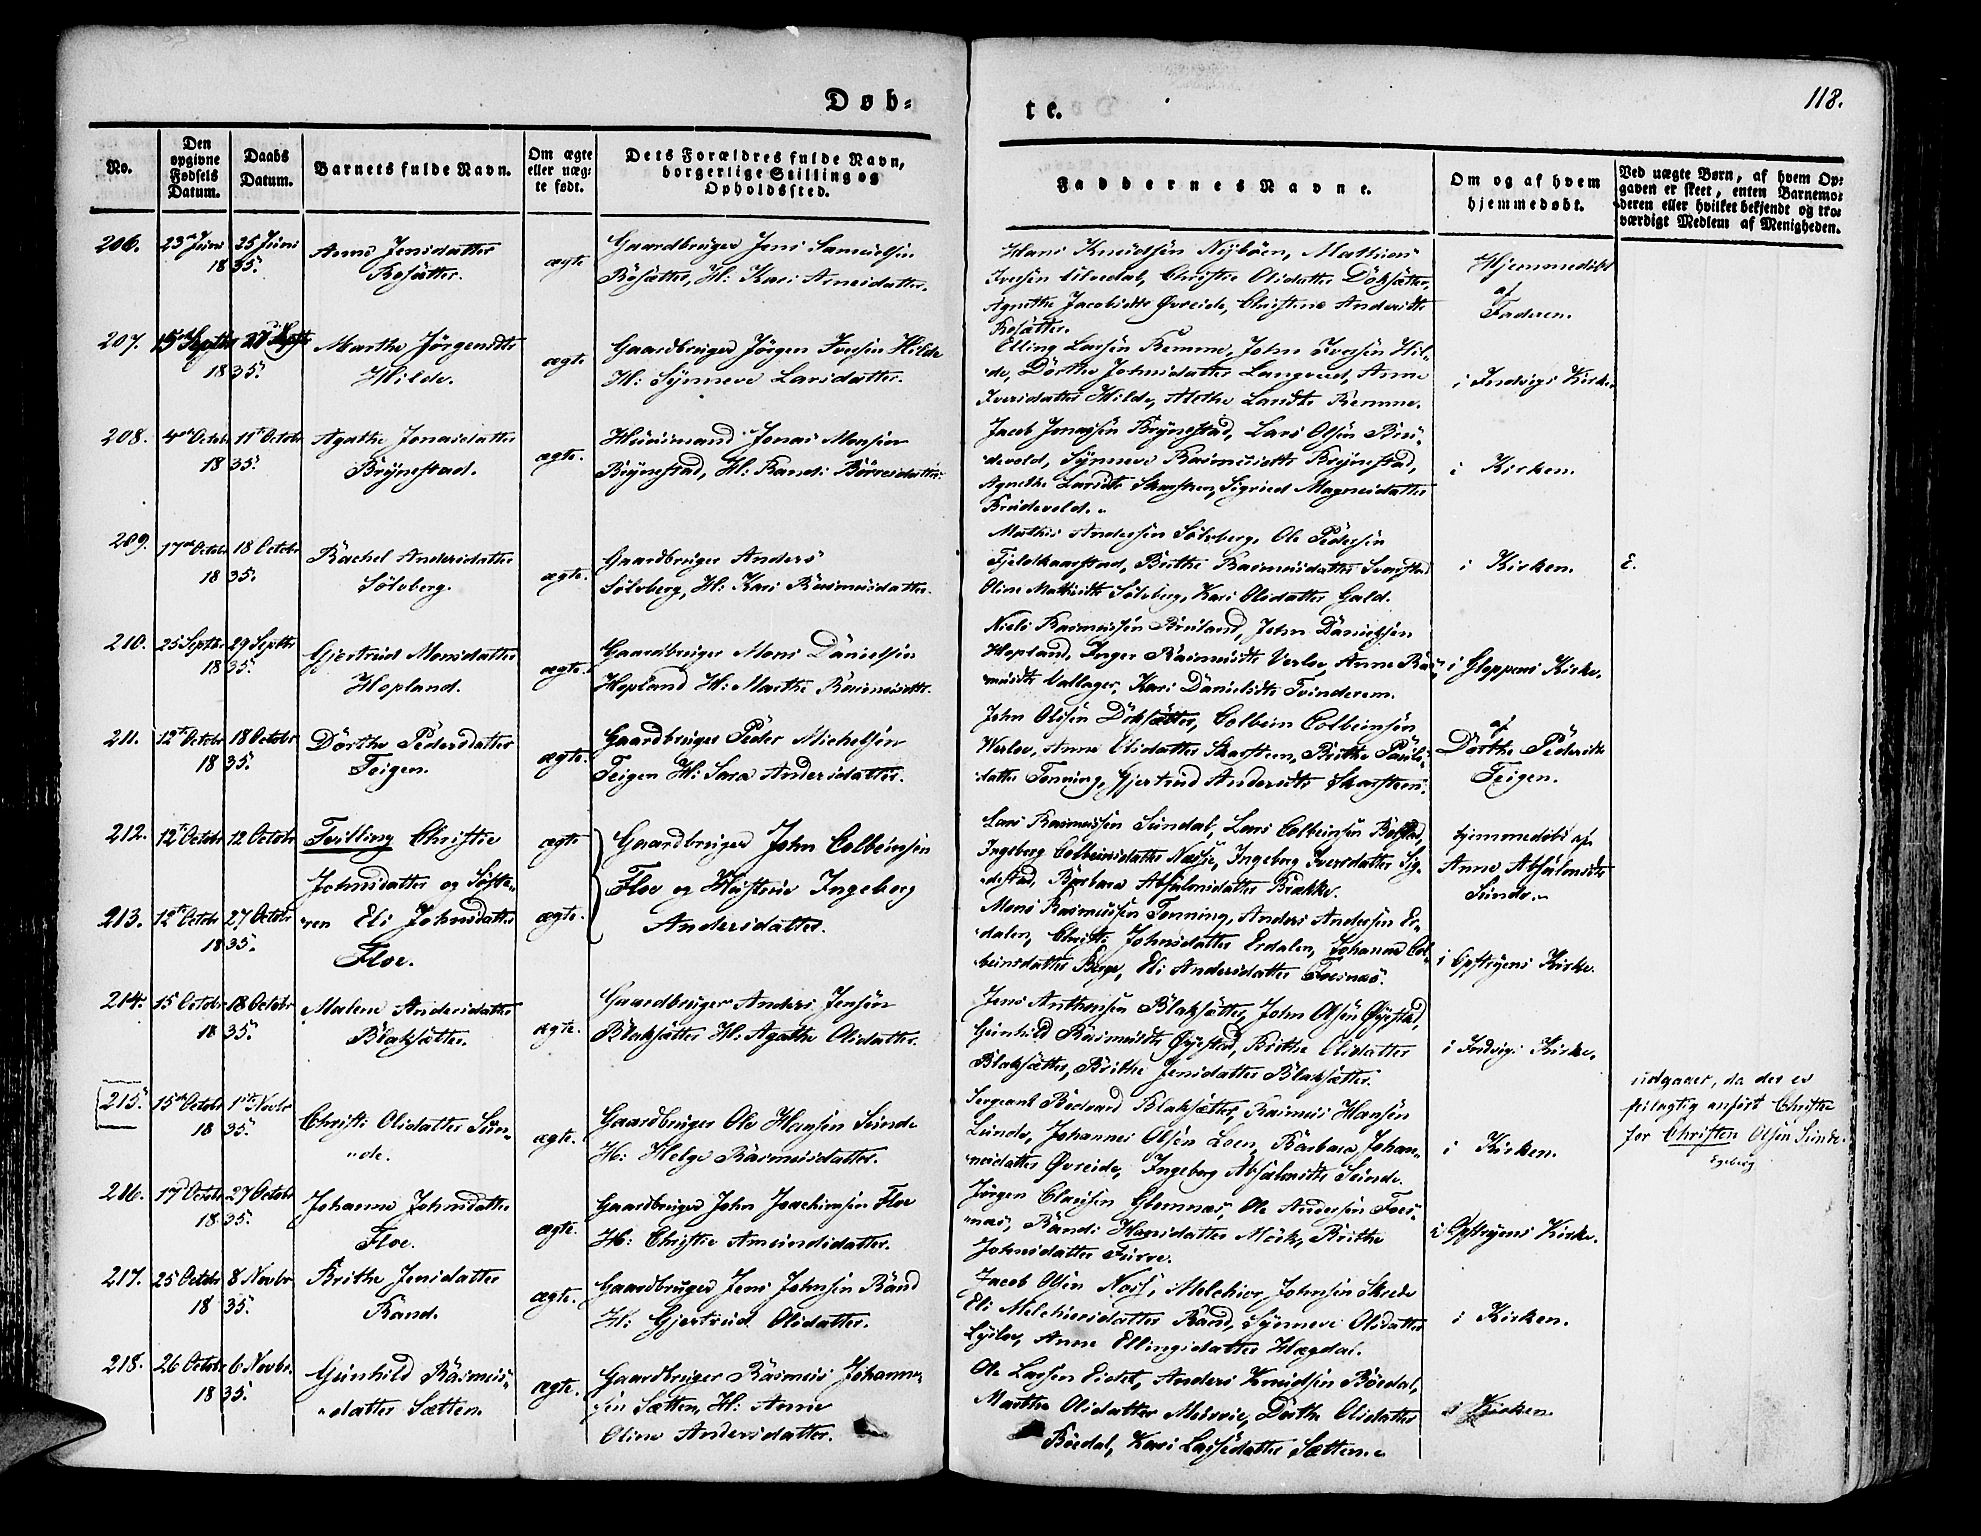 Døb=
te.
118.
No.
Den
opgivne
Fødsels
Datum.
Daabs
Datum.
Barnets fulde Navn.
Om ægte
eller uæg=
te født.
Dets Forældres fulde Navn,
borgerlige Stilling og
Opholdssted.
Faddernes Navne.
Om og af hvem
hjemmedøbt.
Ved uægte Børn, af hvem Op=
gaven er skeet, enten Barnemo=
deren eller hvilket bekjendt og tro=
værdigt Medlem af Menigheden.
206. 23de Juni 25 Juni
1835.
Anne Jensdatter
Rosætter.
ægte
Gaardbruger Jens Samuelsen
Rosætter, H: Kari Arnesdatter.
Hans Knudsen Mathias
Iversen Ulvedal, Christie Olsdatter Döksætter,
Agnethe Jacobsdtr Øvreide, Christine Andersdtr
Rosætter.
Hjemmedøbt
af
Faderen.
207. 15 Septbr 27 Septbr
1835.
Marthe Jørgensdtr
Hilde.
ægte
Gaardbruger Jørgen Iversen Hilde
H: Synneve Larsdatter.
Elling Larsen Remme, John Iversen Hil=
de, Dorthe Johnsdatter Langved, Anne
Iversdatter Hilde, Marthe Larsdtr Remme.
i Indvigs Kirke
208. 4de Octobr 11te Octobr
1835.
Agathe Jonasdatter
Brynestad.
ægte.
Huusmand Jonas Monsen
Brynestad, H: Randi Börresdatter.
Jacob Jonassen Brynestad, Lars Olsen Bru=
develd, Synneve Rasmusdtr Brynestad,
Agnethe Larsdtr Skarsteen, Sigried Magnesdatter
Brudeveld.
i Kirken.
209. 17de Octobr 18 Octobr
1835.
Rachel Andersdatter
Sölvberg.
ægte.
Gaardbruger Anders
Sölvberg, H: Kari Rasmusdatter.
Mathis Andersen Sölvberg, Ole Pedersen
Fjeldkaarstad, Birthe Rasmusdatter Svarstad
Oline Mathisdtr Sölvberg, Kari Olsdatter Gald.
i Kirken.
E.
210. 25 Septbr 29 Septbr
1835.
Gjertrud Monsdatter
Hopland.
ægte.
Gaardbruger Mons Danielsen
Hopland H: Marthe Rasmusdtr.
Niels Rasmussen Bruland, John Danielsen
Hopland, Inger Rasmusdtr Verlo, Anne Ras=
musdtr Vallager, Kari Danielsdtr Tvinderem.
i Gloppens Kirke.
211. 12te Octobr 18 Octobr
1835.
Dorthe Pedersdatter
Teigen.
ægte.
Gaardbruger Peder Michelsen
Teigen H: Sara Andersdatter.
John Olsen Döksætter, Colbein Colbeinsen
Verlo, Anne Elisdatter Skarsteen, Birthe Pauls=
datter Tenning, Gjertrud Andersdtr Skarsteen.
af
Dorthe Pedersdtr
Teigen.
212. 12te Octobr 12 Octobr
Tvilling Christie
ægte
Johnsdatter og Söste=
213. 12te Octobr 27 Octobr
1835.
ren Eli Johnsdatter
Floe.
ægte.
Gaardbruger John Colbeinsen
Floe og Hustrue Ingeborg
Andersdatter.
Lars Rasmussen Sundal, Lars Colbeinsen Bolstad,
Ingeborg Colbeinsdatter Næsje, Ingeborg Iversdatter Sig=
destad, Barbara Absalonsdatter Brække.
hjemmedøbt af
Anne Absalonsdtr
Sunde.
Mons Rasmussen Tenning, Anders Andersen Er=
dalen, Christi Johnsdatter Erdalen, Johanne Col=
beinsdatter Berge, Eli Andersdatter Fosnæs.
i Opstryens Kirke.
214. 15 Octobr 18 Octobr
1835.
Malene Andersdatter
Blaksætter.
ægte.
Gaardbruger Anders Jensen
Blaksætter H: Agathe Olsdatter.
Jens Anthonsen Blaksætter, John Olsen Öyestad,
Gunhild Rasmusdtr Öyestad, Brithe Olsdatter
Blaksætter, Brithe Jensdatter Blaksætter.
i Indvigs Kirke.
215. 15de Octobr 1ste Novbr
1835.
Christi Olsdatter Sun=
de.
ægte.
Gaardbruger Ole Hansen Sunde
H: Helge Rasmusdatter.
Sergeant Blaksætter, Rasmus Hansen
Sunde, Johannes Olsen Loen, Barbara Johan=
nesdatter Øvreide, Ingeborg Absalonsdtr Sunde.
i Kirken.
udgaaer, da der er
feilagtig anført Christie
for Christen Olsen Sunde.
216. 17de Octobr 27 Octobr
1835.
Johanne Johnsdatter
Floe.
ægte.
Gaardbruger John Joachimsen Floe
H: Christie Amundsdatter.
Jørgen Claussen Glomnæs, Ole Andersen Fos=
næs, Randi Hansdatter Mörk, Brithe
Johnsdatter Furre.
i Opstryens Kirke.
217. 25 Octobr 8 Novbr
1835.
Brithe Jensdatter
Rand.
ægte.
Gaardbruger Jens Johnsen Rand
H: Gjertrud Olsdatter.
Jacob Olsen Melchior Johnsen Skrede
Eli Melchiorsdatter Rand, Synneve Olsdatter
Anne Ellingsdatter Hægdal.
i Kirken.
218. 26 Octobr 6 Novbr.
1835.
Gunhild Rasmus=
datter Sætten.
ægte.
Gaardbruger Rasmus Johanne=
sen Sætten, H: Anne
Oline Andersdatter.
Ole Larsen Eidet, Anders Knudsen Böedal,
Marthe Olsdatter Muurie, Dorthe Olsdatter
Böedal, Kari Larsdatter Sætten.
i Kirken